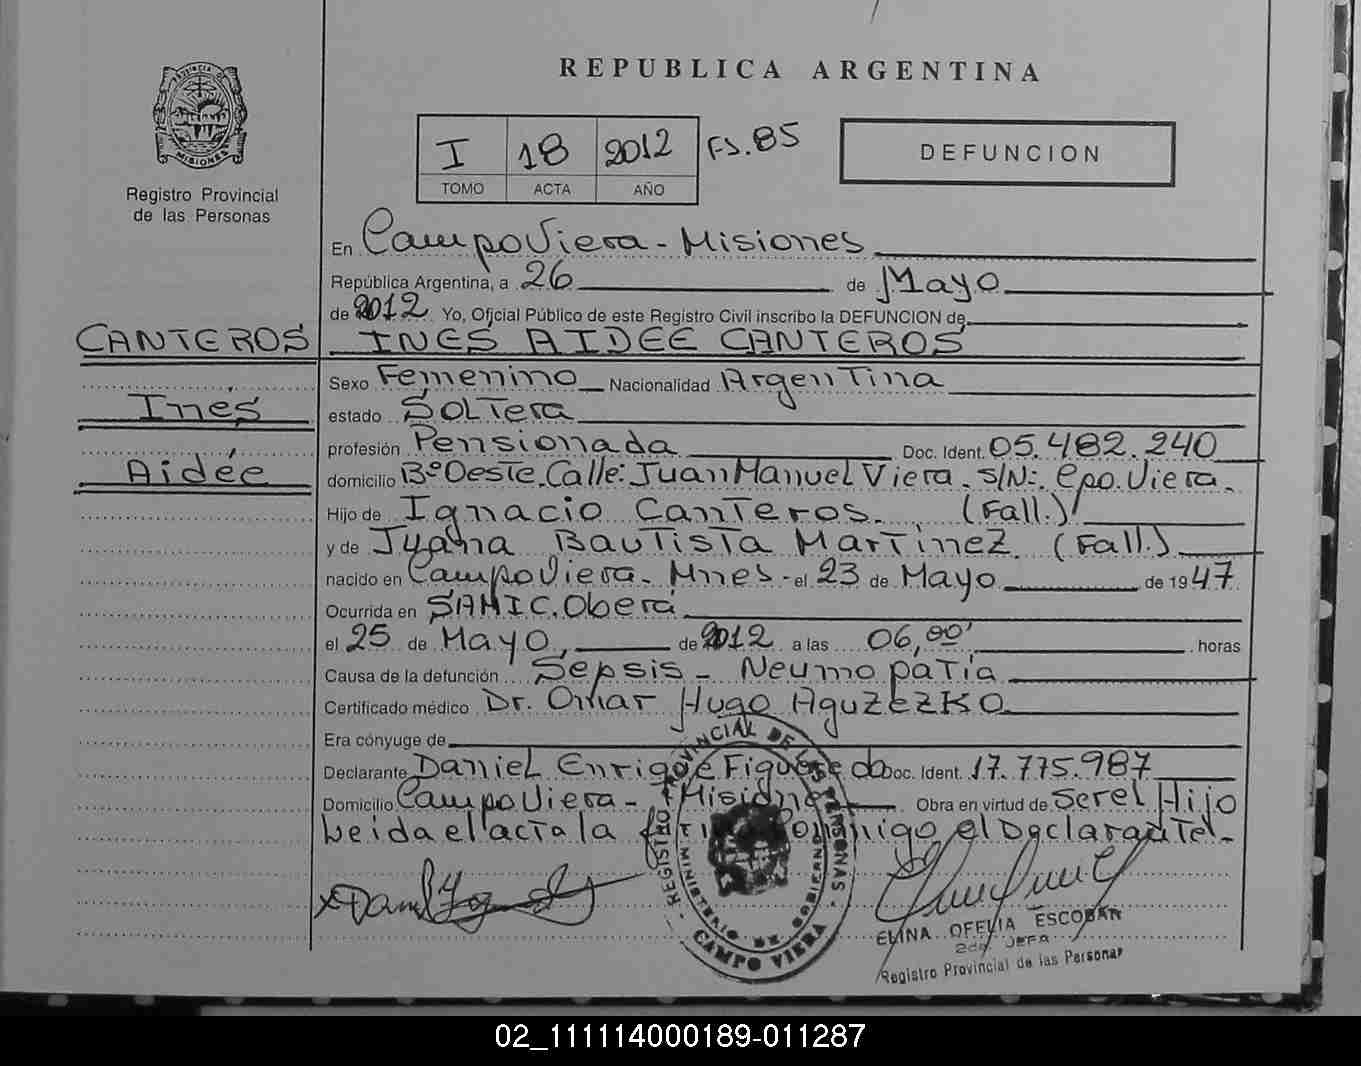 REPUBLICA ARGENTINA
PROVINCIA DE
MISIONES
Registro Provincial
de las Personas
I 18 2012 FS. 85
TOMO ACTA AÑO
DEFUNCION
En CampoViera - Misiones
República Argentina, a 26 de Mayo
de 2012 Yo, Oficial Público de este Registro Civil inscribo la DEFUNCION de
CANTEROS INES AIDEE CANTEROS
Sexo Femenino Nacionalidad Argentina
Inés estado Soltera
profesión Pensionada Doc. Ident. 05.482.240
Aidée domicilio Bº Oeste. Calle: Juan Manuel Viera. S/N:. Cpo. Viera.
Hijo de Ignacio Canteros. (Fall.)
y de Juana Bautista Martinez. (Fall.)
nacido en CampoViera. Mnes - el 23 de Mayo de 1947
Ocurrida en SAMIC. Oberá
el 25 de Mayo, de 2012 a las 06,00' horas
Causa de la defunción Sepsis - Neumopatía
Certificado médico Dr. Omar Hugo Aguzezko
Era cónyuge de
Declarante Daniel Enrique Figueredo Doc. Ident. 17.775.987
Domicilio CampoViera - Misiones Obra en virtud de ser el Hijo
Leida el acta la firma conmigo el Declarante.-
REGISTRO PROVINCIAL DE LAS PERSONAS
MINISTERIO DE GOBIERNO
CAMPO VIERA
ELINA OFELIA ESCOBAR
2da. JEFA
Registro Provincial de las Personas
02_111114000189-011287